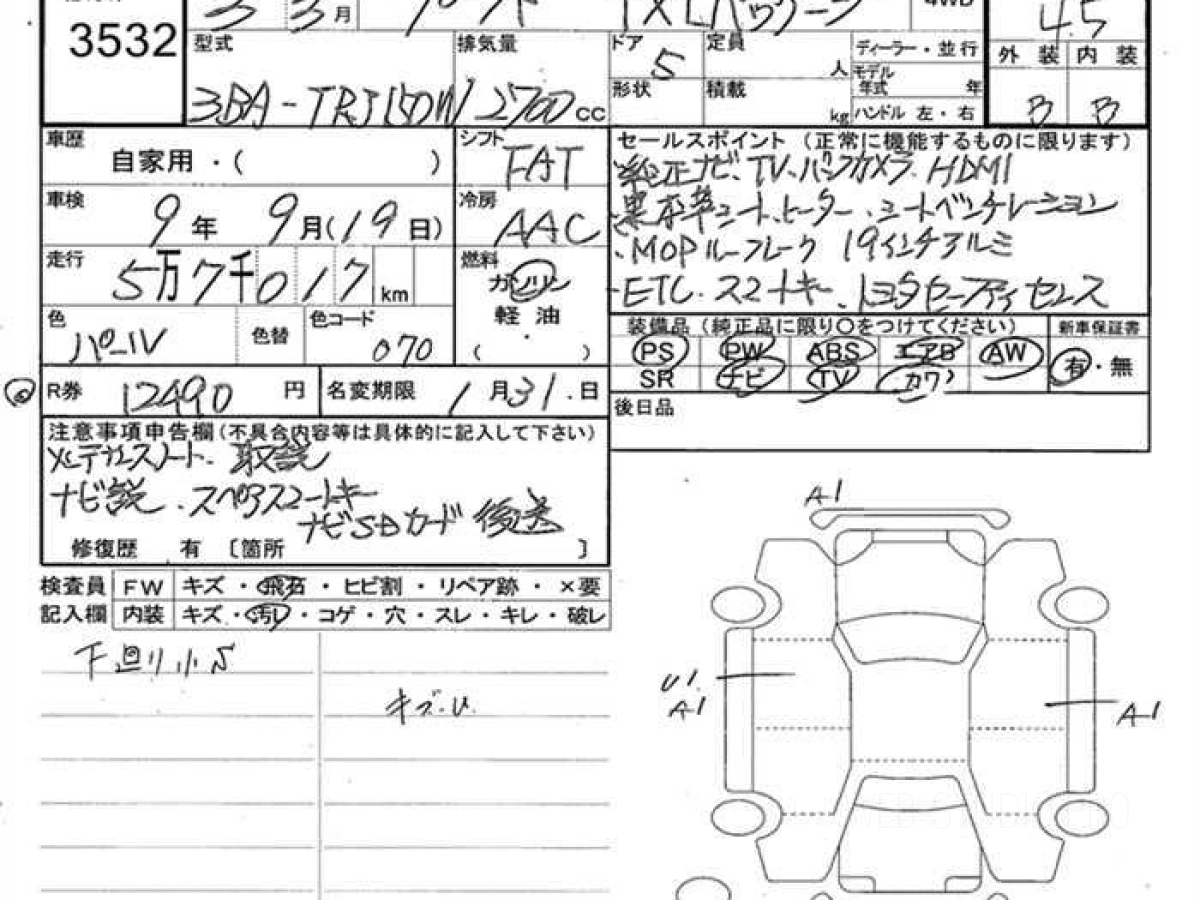 3 3月 プラド TXLパッケージ 4WD 4.5
3532
型式 3BA-TRJ150W
排気量 2700cc
ドア 5
定員 人
ディーラー・並行
形状
積載 kg
モデル年式 年
ハンドル 左・右
外装 内装
B B
車歴 自家用・( )
シフト FAT
セールスポイント (正常に機能するものに限ります)
・純正ナビ、TV、バックカメラ、HDMI
・黒本革シート、ヒーター、シートベンチレーション
・MOPルーフレーク 19インチアルミ
・ETC・スマートキー、トヨタセーフティセンス
車検 9年 9月(19日)
冷房 AAC
走行 5万7千017km
燃料 ガソリン
軽油
( ・ )
色 パール
色替
色コード 070
装備品 (純正品に限り○をつけてください)
新車保証書
PS PW ABS エアB AW
有・無
SR ナビ TV カワ
R券 12490 円
名変期限 1月31日
後日品
注意事項申告欄(不具合内容等は具体的に記入して下さい)
メンテナンスノート、取説
ナビ説、スペアスマートキー
ナビSDカード 後送
修復歴 有 〔箇所 〕
検査員 FW キズ・飛石・ヒビ割・リペア跡・×要
記入欄 内装 キズ・汚レ・コゲ・穴・スレ・キレ・破レ
下廻り小S
キズ・U
A1
U1
A1
A1